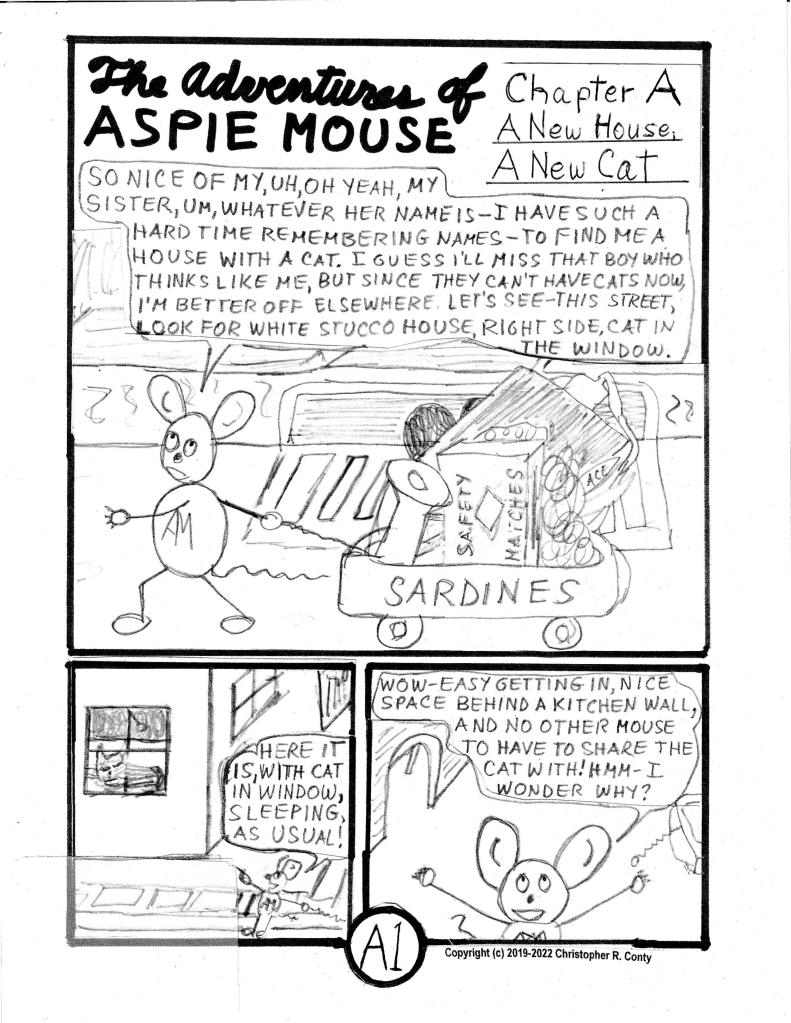 The Adventures of
ASPIE MOUSE
Chapter A
A New House,
A New Cat
SO NICE OF MY, UH, OH YEAH, MY
SISTER, UM, WHATEVER HER NAME IS-I HAVE SUCH A
HARD TIME REMEMBERING NAMES-TO FIND ME A
HOUSE WITH A CAT. I GUESS I'LL MISS THAT BOY WHO
THINKS LIKE ME, BUT SINCE THEY CAN'T HAVE CATS NOW,
I'M BETTER OFF ELSEWHERE. LET'S SEE-THIS STREET,
LOOK FOR WHITE STUCCO HOUSE, RIGHT SIDE, CAT IN
THE WINDOW.
AM
SAFETY
MATCHES
ACE
SARDINES
HERE IT
IS, WITH CAT
IN WINDOW,
SLEEPING,
AS USUAL!
AM
WOW-EASY GETTING IN, NICE
SPACE BEHIND A KITCHEN WALL,
AND NO OTHER MOUSE
TO HAVE TO SHARE THE
CAT WITH! HMM-I
WONDER WHY?
A1
Copyright (c) 2019-2022 Christopher R. Conty